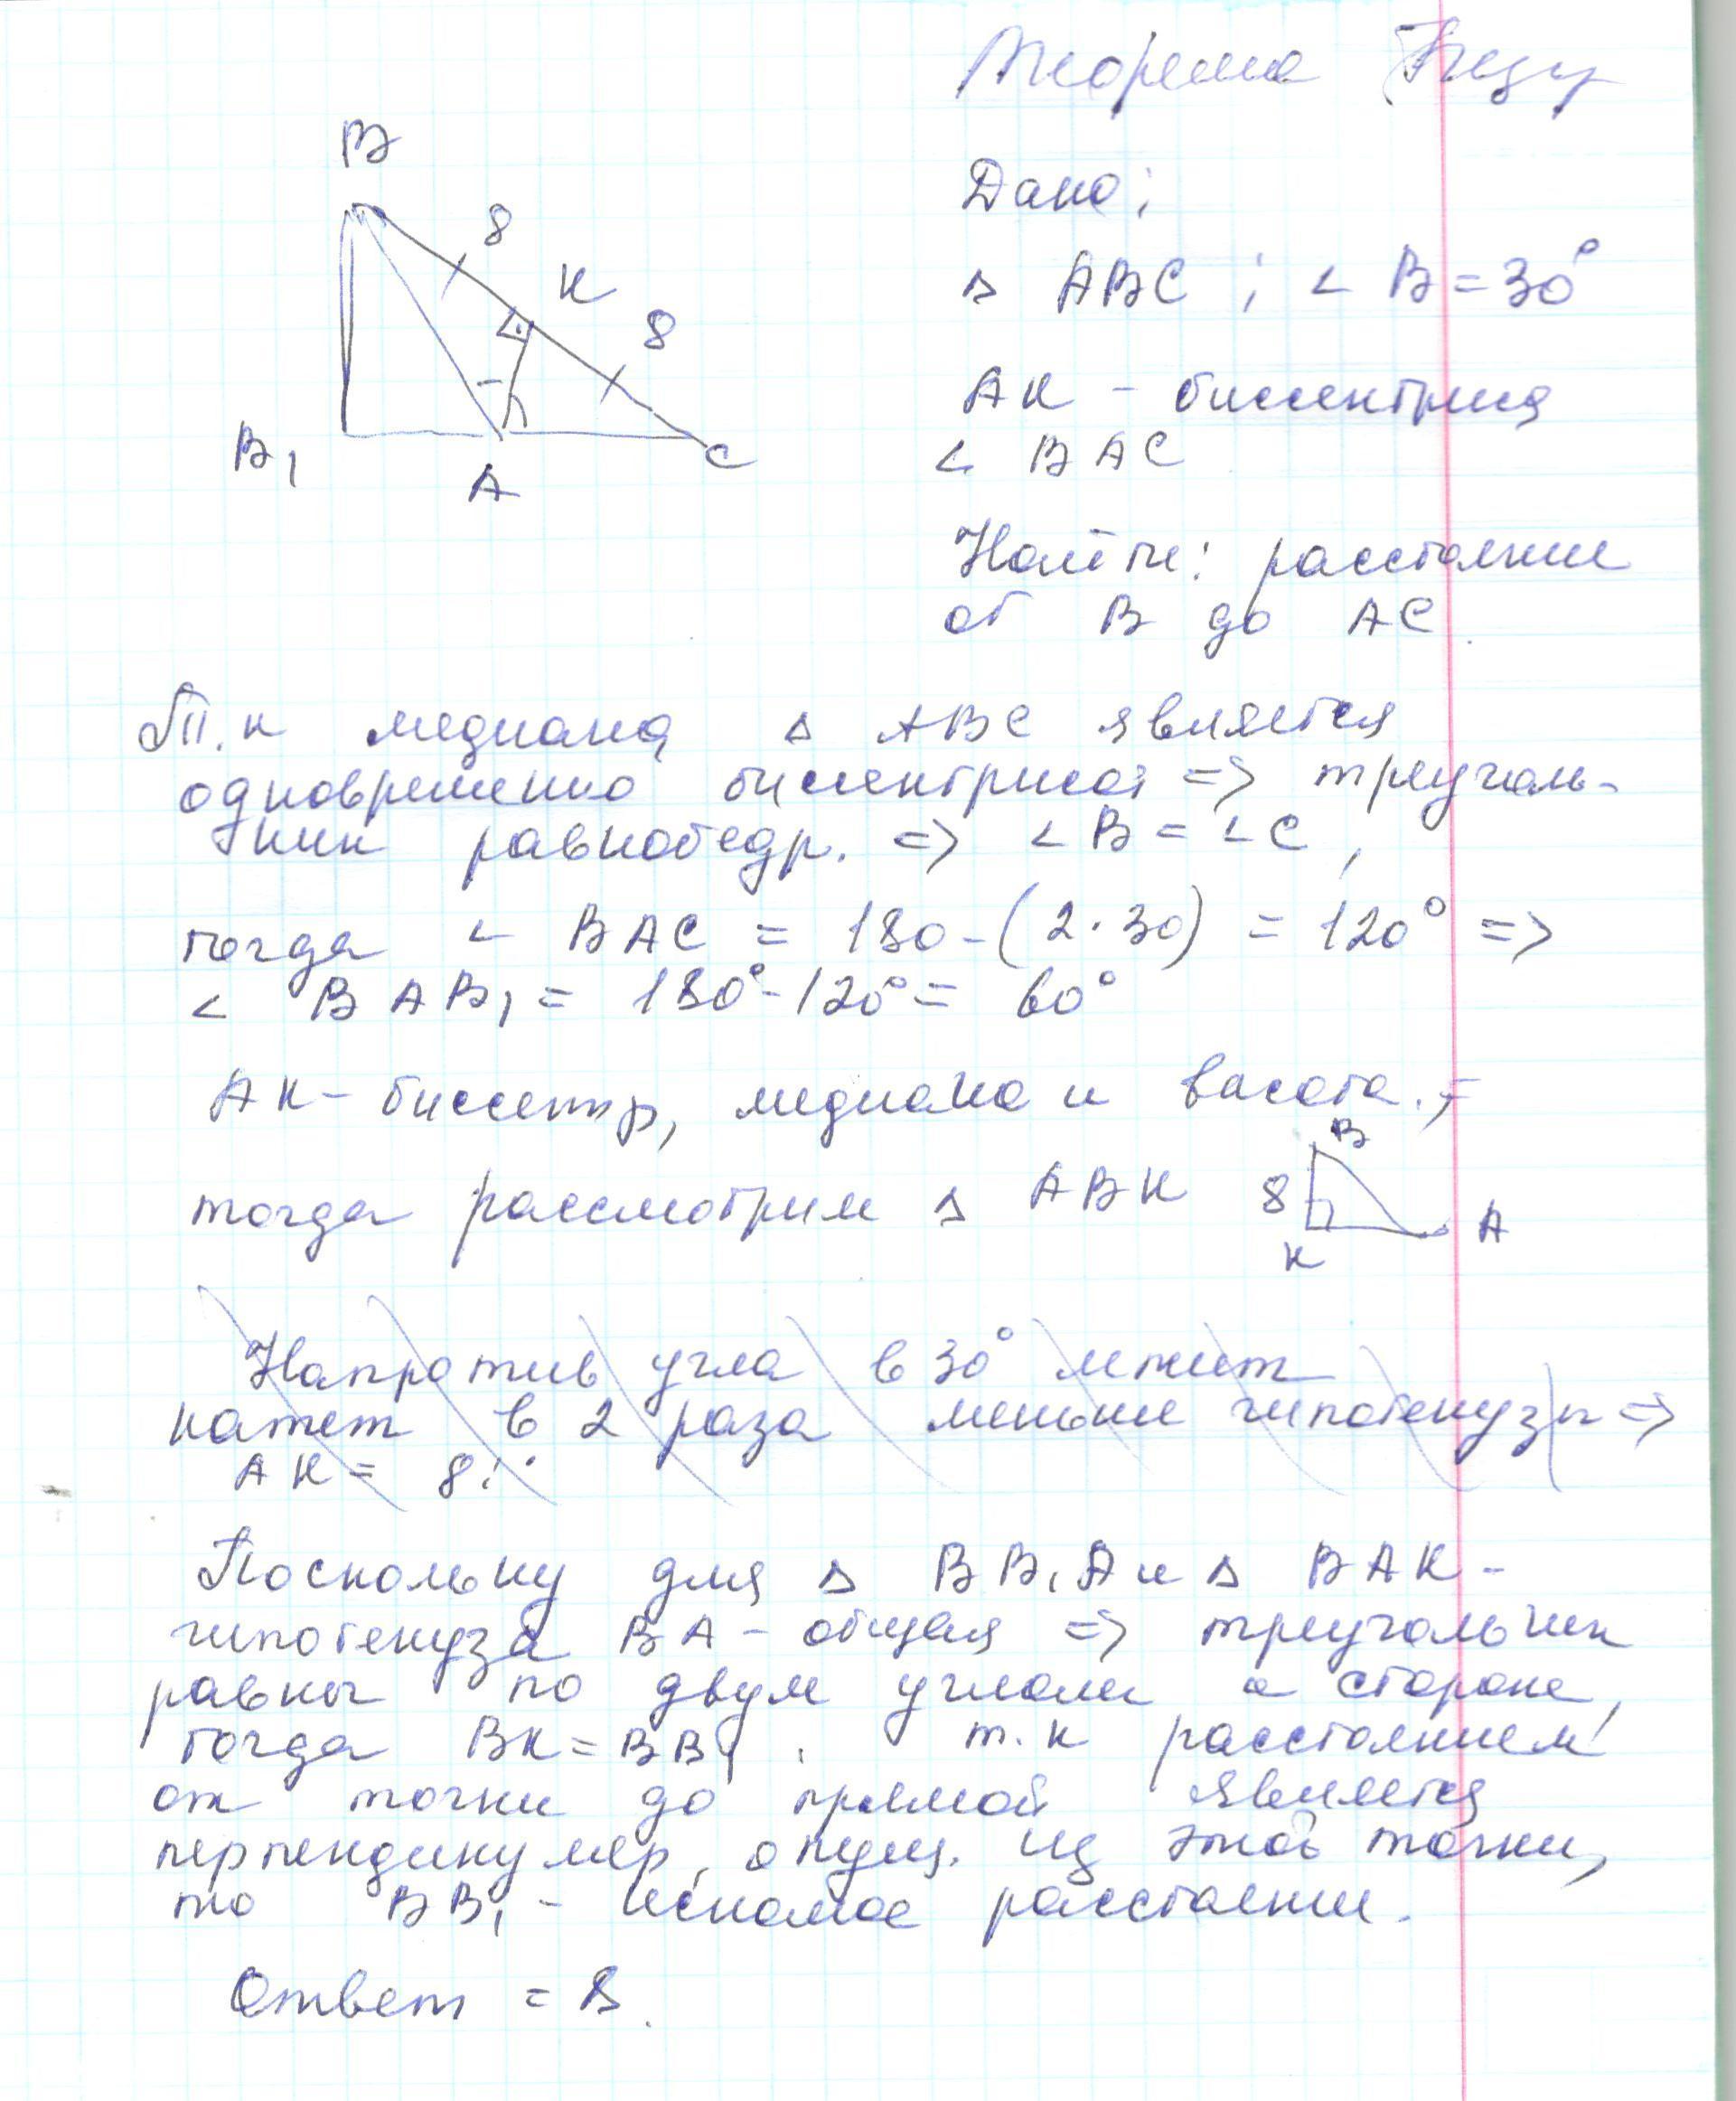 Теорема
В
8
К
8
В₁
А
С
Дано:
△ АВС ; ∠ В = 30°
АК - биссектриса
∠ ВАС
Найти: расстояние
от В до АС.
Т.к медиана △ АВС является
одновременно биссектрисой => треуголь-
ник равнобедр. => ∠ В = ∠ С,
тогда ∠ ВАС = 180 - (2·30) = 120° =>
∠ ВАВ₁ = 180° - 120° = 60°
АК - биссектр, медиана и васота.,
тогда рассмотрим △ АВК
В
8
К
А
Напротив угла в 30° лежит
катет в 2 раза меньше гипотенузы =>
АК = 8:
Поскольку для △ ВВ₁А и △ ВАК -
гипотенуза ВА - общая => треугольник
равны по двум углам и стороне,
тогда ВК = ВВ₁. т.к расстоянием
от точки до прямой является
перпендикуляр, опущ. из этой точки,
то ВВ₁ - искомое расстояние.
Ответ = 8.